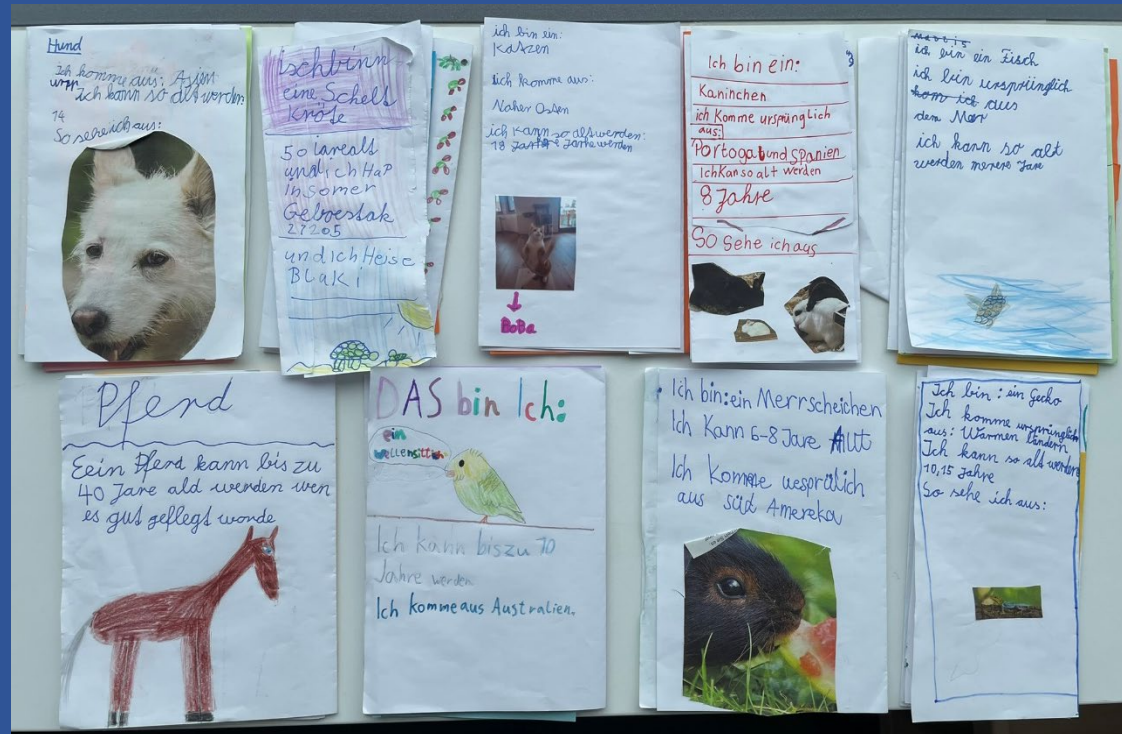 Hund
Ich komme aus: Asien
Ich kann so alt werden:
14
So sehe ich aus:
Ischbinn
eine Schelt
Kröte
50 iareals
undich HaP
in somer
27205
undich Heise
BLaki
ich bin ein:
Katzen
ich komme aus:
Naher Osten
ich kann so alt werden:
18 Jahre werden
BoBa
Ich bin ein:
Kaninchen
ich Komme ursprünglich
aus:
Portogal und Spanien
Ich Kan so alt werden
8 Jahre
So Sehe ich aus
ich bin ein Fisch
ich bin ursprünglich
kom ich aus
dem Mer
ich kann so alt
werden merere Jare
Pferd
Eein Pferd kann bis zu
40 Jare ald werden wen
es gut geflegt wonde
DAS bin Ich:
ein
WeLLensittich
Ich kann bis zu 10
Jahre werden
Ich komme aus Australien.
Ich bin: ein Merrscheichen
Ich Kann 6-8 Jare Allt
Ich Komme uesprülich
aus süd Amereka
Ich bin: ein Gecko
Ich komme ursprünglich
aus: Warmen Ländern
Ich kann so alt werden
10,15 Jahre
So sehe ich aus: